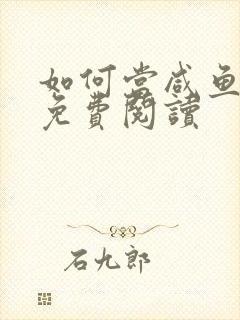 如何当咸鱼
免費閱讀
石九郎